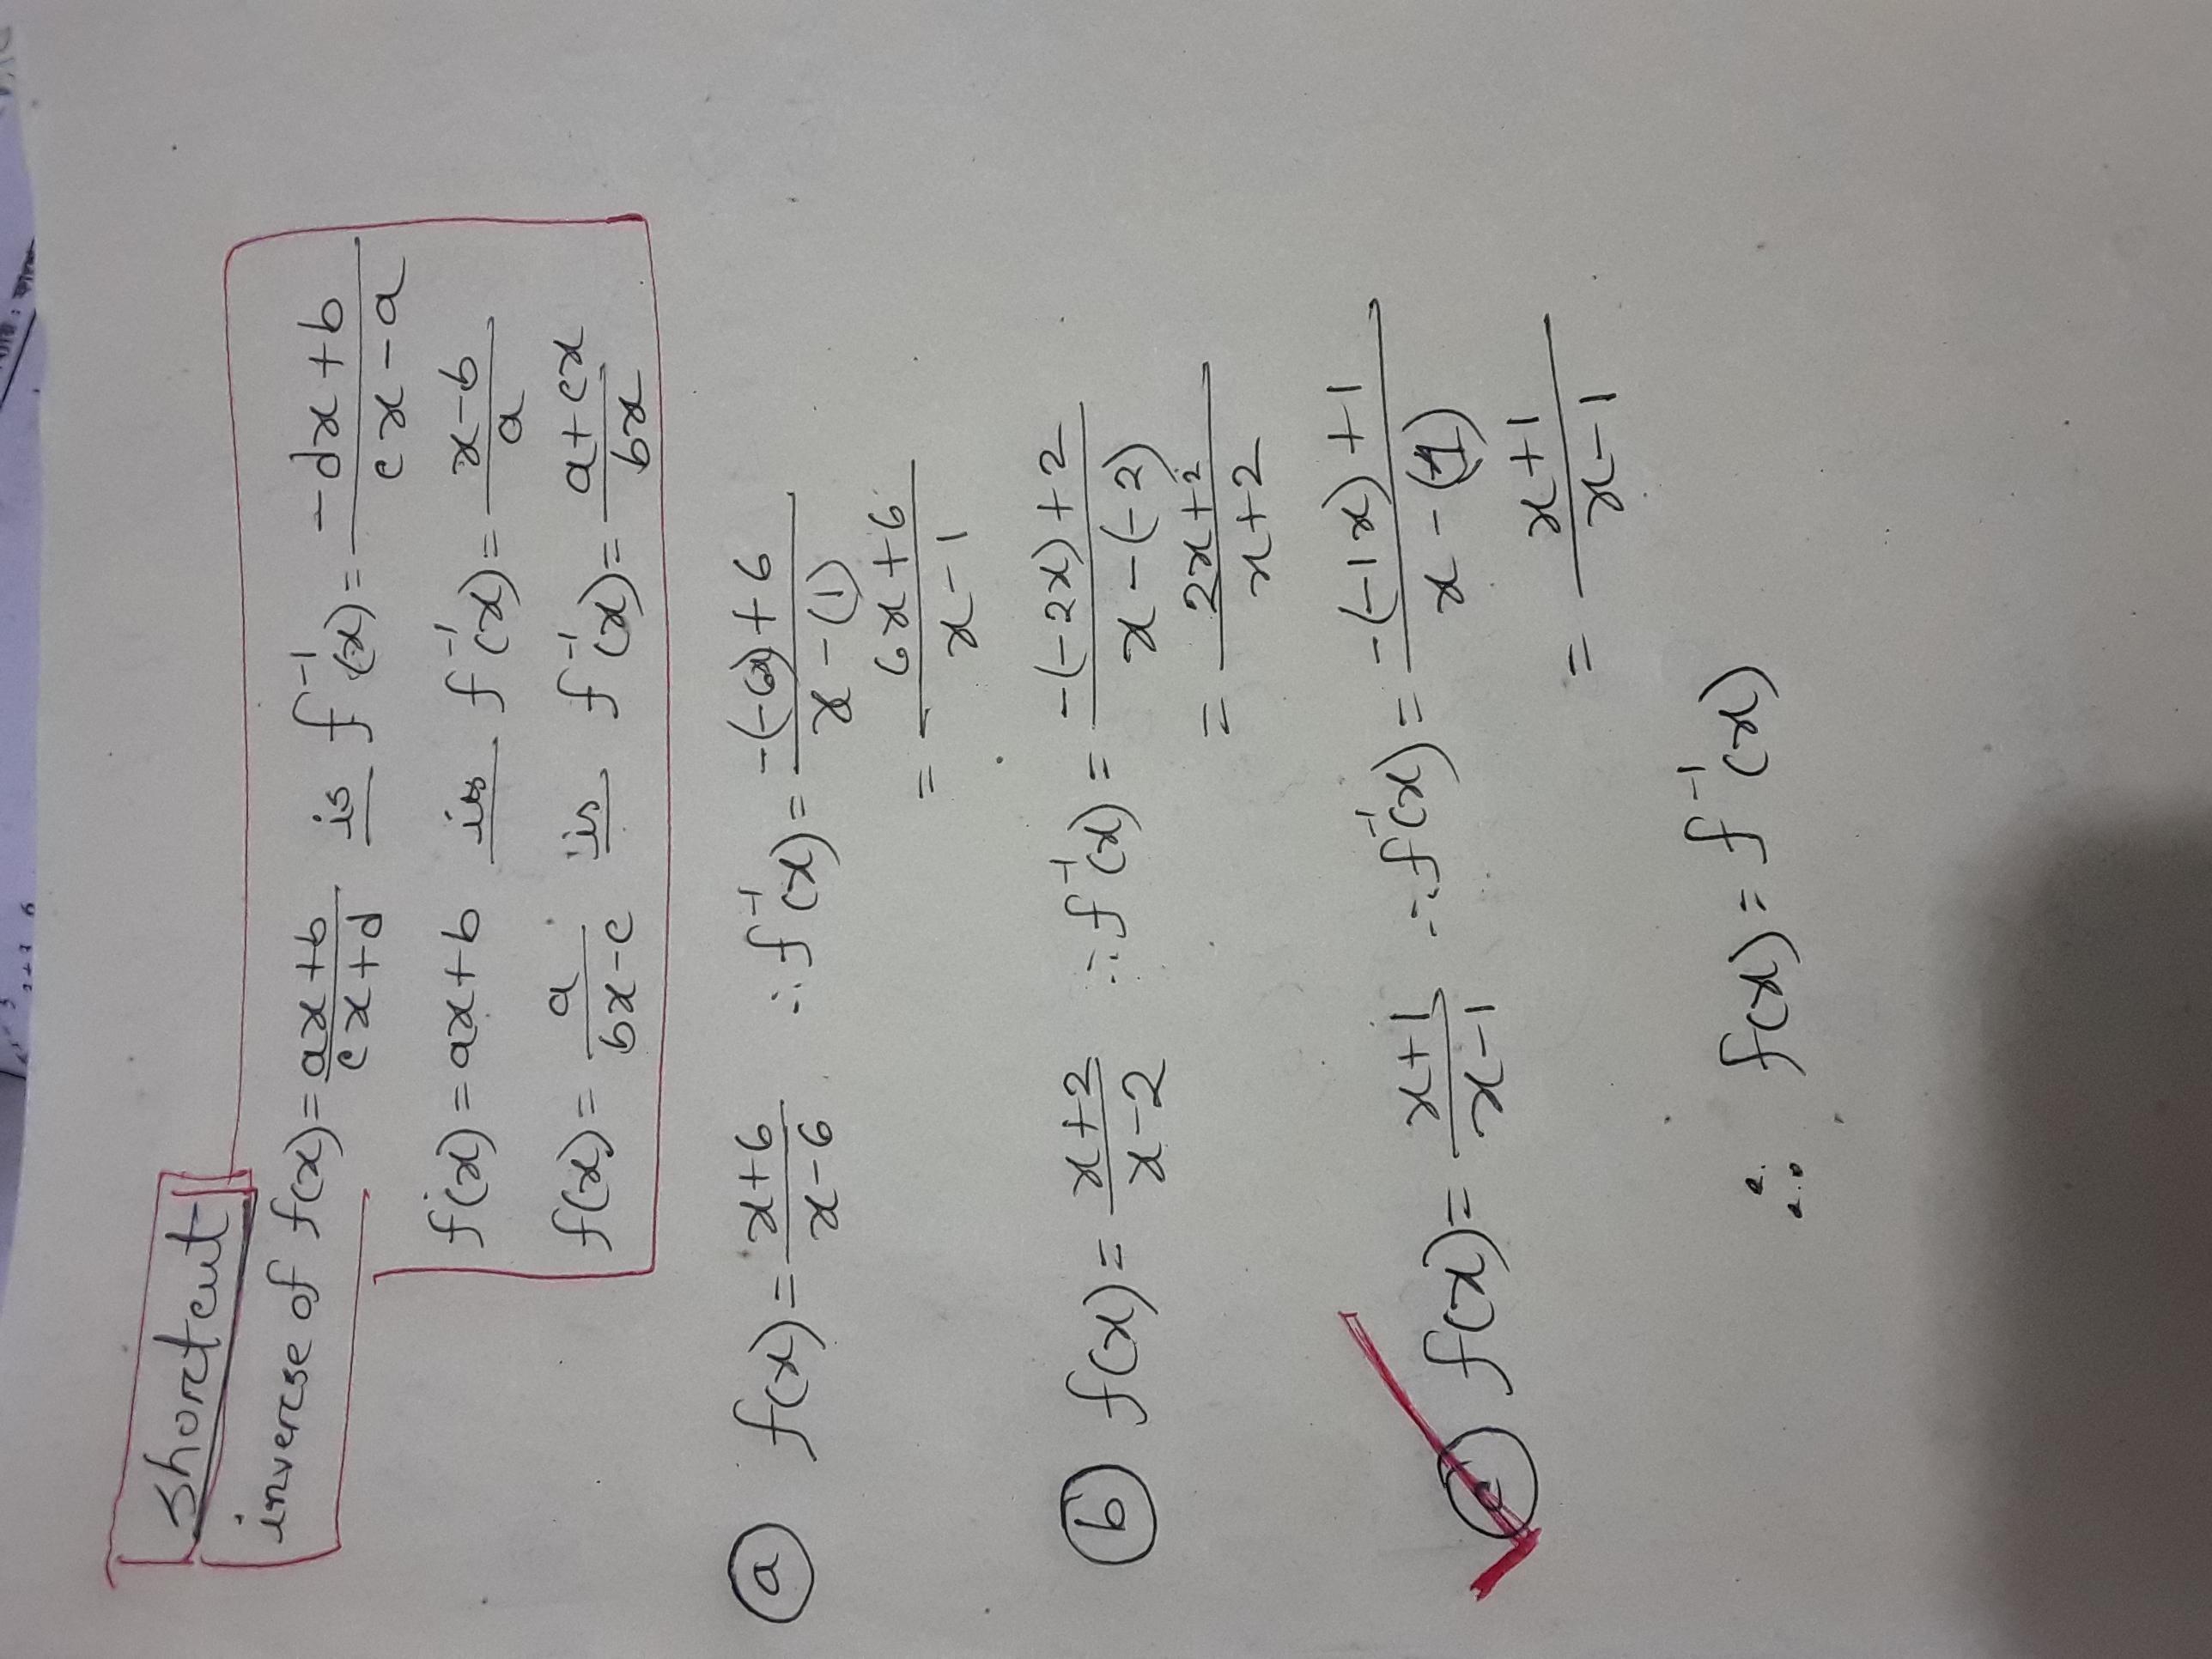 Shortcut
inverse of f(x) = (ax+b)/(cx+d) is f⁻¹(x) = (-dx+b)/(cx-a)
f(x) = ax+b is f⁻¹(x) = (x-b)/a
f(x) = a/(bx-c) is f⁻¹(x) = (a+cx)/(bx)
(a) f(x) = (x+6)/(x-6) ∴ f⁻¹(x) = (-(-6x)+6)/(x-(1))
= (6x+6)/(x-1)
(b) f(x) = (x+2)/(x-2) ∴ f⁻¹(x) = (-(-2x)+2)/(x-(-2))
= (2x+2)/(x+2)
(c) f(x) = (x+1)/(x-1) ∴ f⁻¹(x) = (-(-1x)+1)/(x-(1))
= (x+1)/(x-1)
∴ f(x) = f⁻¹(x)